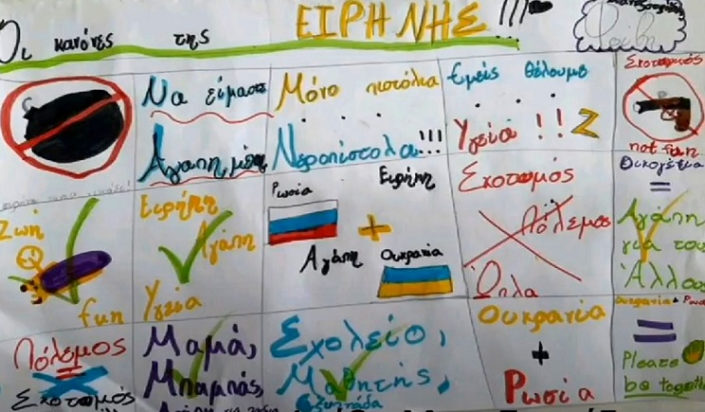 Οι κανόνες της ΕΙΡΗΝΗΣ!!!
Να είμαστε
Αγαπημένοι
Μόνο πιστόλια
Νεροπίστολα!!!
Εμείς θέλουμε
Υγεία!!
Σκοτωμός
not fun
Ζωή
fun
Ειρήνη
Αγάπη
Υγεία
Ρωσία
Ειρήνη
+
Αγάπη
Ουκρανία
Σκοτωμός
Πόλεμος
Όπλα
Οικογένεια
=
Αγάπη
για τους
Άλλους
Πόλεμος
=
Σκοτωμός
Μαμά,
Μπαμπάς,
Σχολείο,
Μαθητής,
Ουκρανία
+
Ρωσία
Ουκρανία + Ρωσία
=
Please
be together